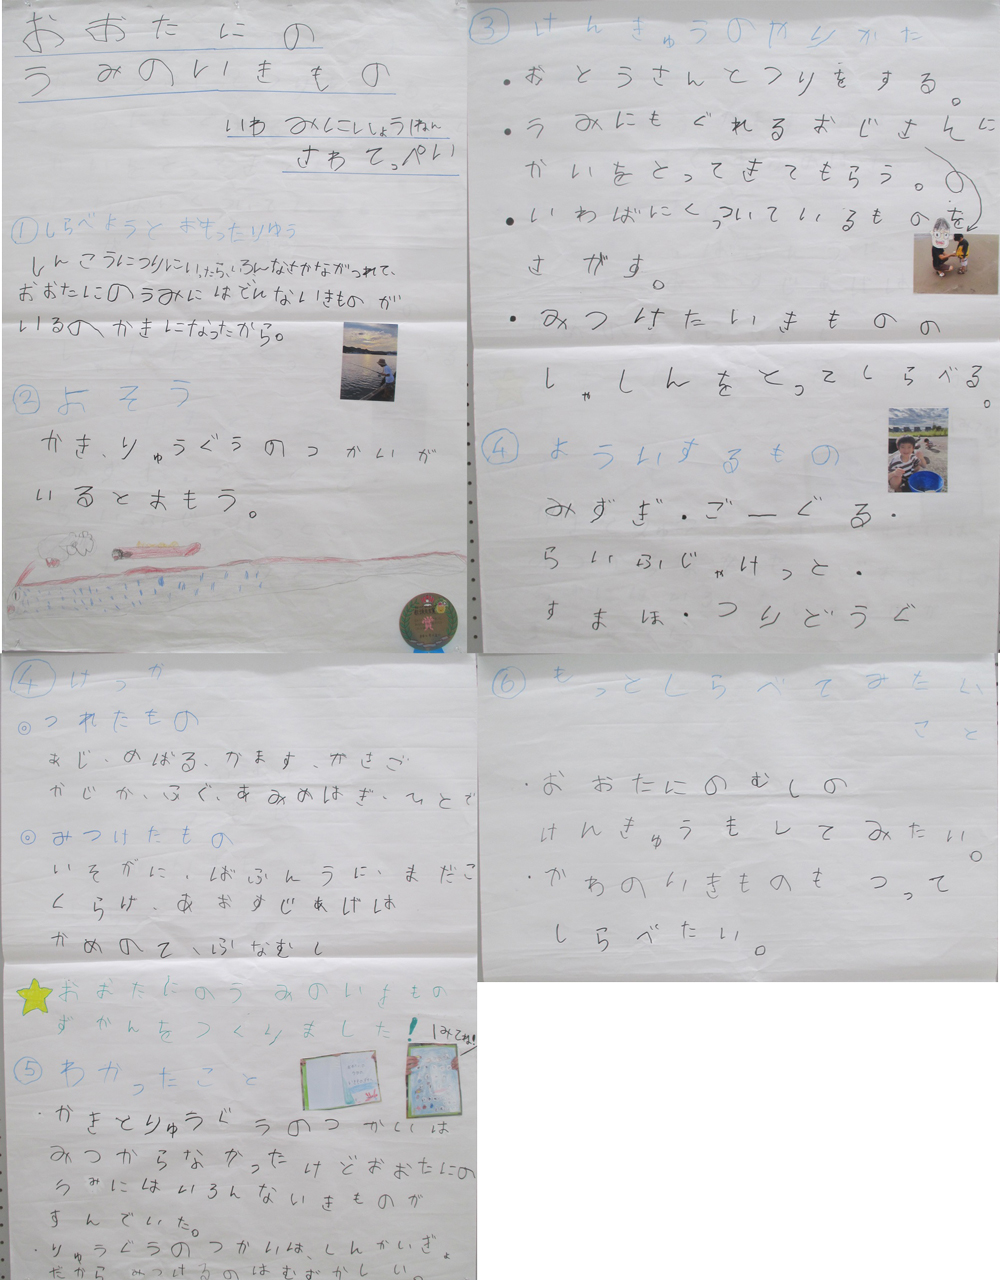 おおたにの
うみのいきもの
いわみにしょう1ねん
さわてっぺい
①しらべようとおもったりゆう
しんこうにつりにいったら、いろんなさかながつれて、
おおたにのうみにはどんないきものが
いるのかきになったから。
②よそう
かき、りゅうぐうのつかいが
いるとおもう。
賞
③けんきゅうのやりかた
・おとうさんとつりをする。
・うみにもぐれるおじさんに
かいをとってきてもらう。
・いわばにくっついているものを
さがす。
・みつけたいきものの
しゃしんをとってしらべる。
④よういするもの
みずぎ・ごーぐる・
らいふじゃけっと・
すまほ・つりどうぐ
④けっか
◎つれたもの
あじ、めばる、かます、かさご
かじか、ふぐ、あみめはぎ、ひとで
◎みつけたもの
いそがに、ばふんうに、まだこ
くらげ、あおすじあげは
かめのて、ふなむし
おおたにのうみのいきもの
ずかんをつくりました!
みてね!
⑤わかったこと
・かきとりゅうぐうのつかいは
みつからなかったけどおおたにの
うみにはいろんないきものが
すんでいた。
・りゅうぐうのつかいは、しんかいぎょ
だからみつけるのはむずかしい。
⑥もっとしらべてみたい
こと
・おおたにのむしの
けんきゅうもしてみたい。
・かわのいきものもつって
しらべたい。